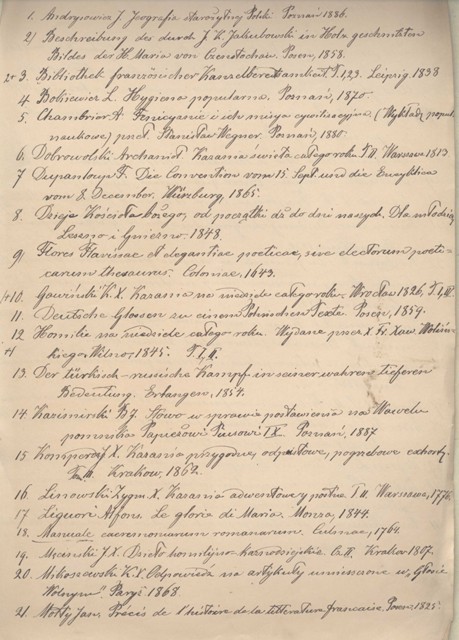 1. Andrysowicz J. Geografia starożytnej Polski Poznań 1886.
2) Beschreibung des durch J. K. Jakubowski in Holz geschnitzten
Bildes der H. Maria von Czenstochau. Posen, 1858.
2+ 3. Bibliothek französischer Kanzelberedsamkeit T. 1,2,3. Leipzig 1838
4 Bobiewicz L. Hygiena popularna. Poznań, 1870.
5. Chambrior A. Fenicyanie i ich misya cywilizacyjna. (Wykład popul.
naukowe) przeł. Stanisław Wegner. Poznań, 1880.
6. Dobrowolski Archaniół Kazania święta całego roku. T. II. Warszawa 1813
7 Dupanloup F. Die Convention vom 15. Sept. und die Encyklica
vom 8. December. Würzburg, 1865.
8. Dzieje Kościoła bożego, od początku aż do dni naszych. Dla młodzieży
Leszno i Gniezno. 1848.
9) Flores Flavissae et elegantiae poeticae, sive electorum poeti-
carum thesaurus. Coloniae, 1643.
1+10. Gawiński K. X. Kazania na niedziele całego roku. Wrocław 1826, T. I, III.
11. Deutsche Glossen zu einem Polnischen Texte. Posen, 1859.
12 Homilie na niedziele całego roku. Wydane przez X. Fr. Xaw.
+1 kiego. Wilno, 1845. T. I, II.
13. Der türkisch-russische Kampf in seiner wahren tieferen
Bedeutung. Erlangen, 1854.
14. Kazimirski B. J. Słowo w sprawie postawienia na Wawelu
pomnika Papieżowi Piusowi IX. Poznań, 1887
15 X. Kazania przygodne, odpustowe, pogrzebowe exhorty.
T. III. Krakow, 1862.
16. Lisnowski Zygm X. Kazania adwentowe y postne. T II. Warszawa, 1776.
17 Liguori Alfons. Le glorie di Maria. Monza, 1844.
18. Manuale caeremoniarum romanarum. Culmae, 1764.
19. J. X. Dzieło homilijno-kaznodziejskie Cz. II. Krakow 1807.
20. Mikoszewski K. X. Odpowiedź na artykuły umieszczone w „Głosie
Wolnym". Paryż 1868
21. Motty Jan, Précis de l'histoire de la littérature française. Posen, 1825.